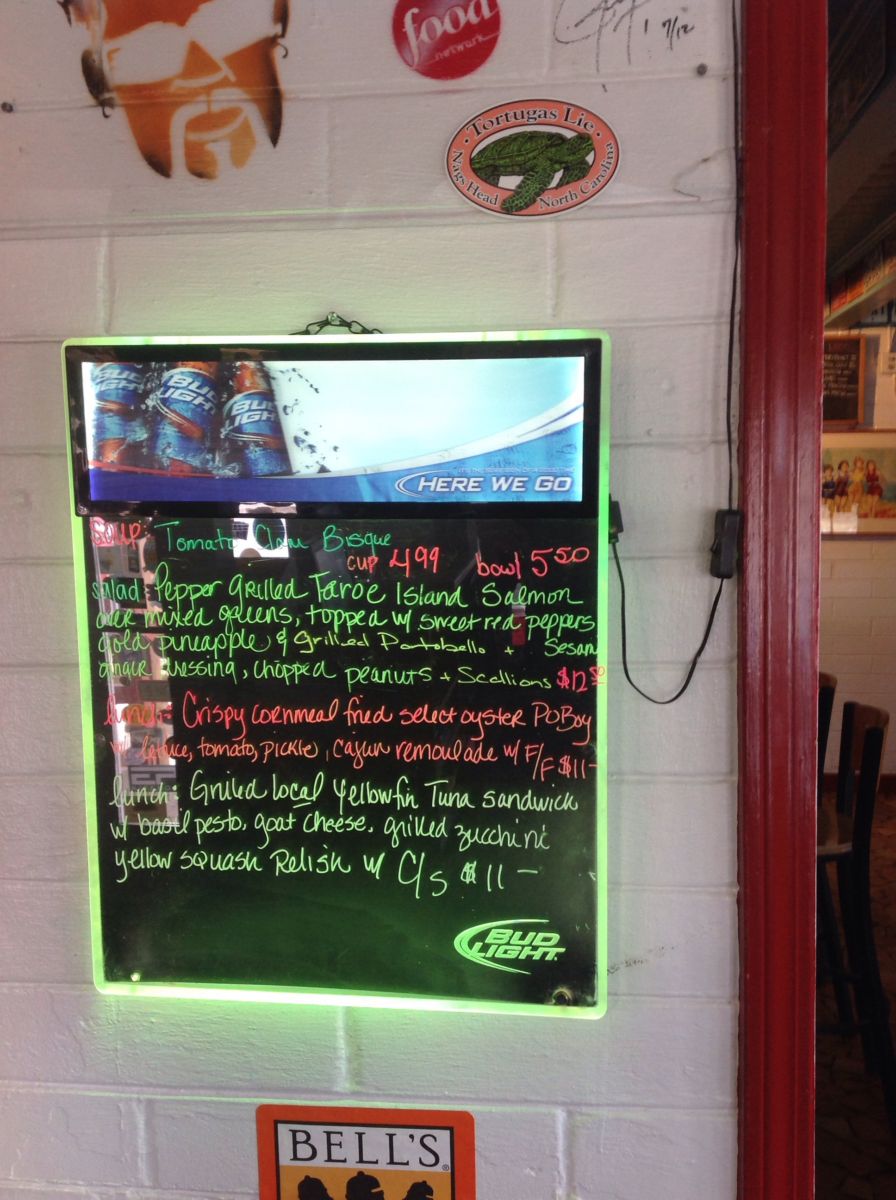 food
network
7/12
Tortugas Lie
Nags Head North Carolina
BUD LIGHT
BUD LIGHT
BUD LIGHT
HERE WE GO
Soup: Tomato Clam Bisque
cup 4 99 bowl 5 50
Salad: Pepper Grilled Faroe Island Salmon
over mixed greens, topped w/ sweet red peppers
gold pineapple, & Grilled Portobello + Sesam
dressing, chopped peanuts + Scallions $12 50
lunch: Crispy cornmeal fried select oyster PoBoy
w/ lettuce, tomato, pickle, cajun remoulade w/ F/F $11-
lunch: Grilled local Yellowfin Tuna sandwich
w/ basil pesto, goat cheese, grilled zucchini
yellow squash Relish w/ C/S $11 -
BUD
LIGHT
BELL'S